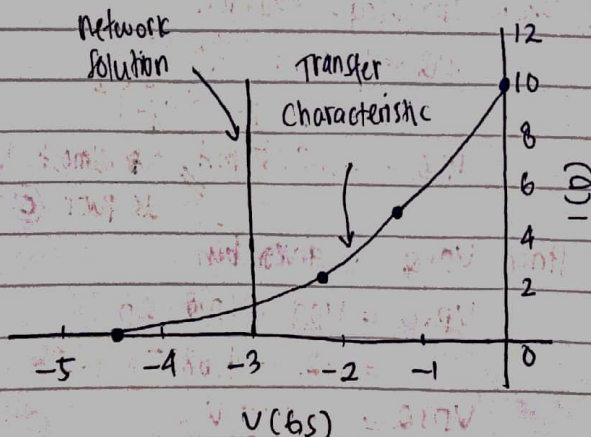 Network
Solution
Transfer
Characteristic
12
10
8
6
4
2
0
I(D)
-5
-4
-3
-2
-1
V(GS)